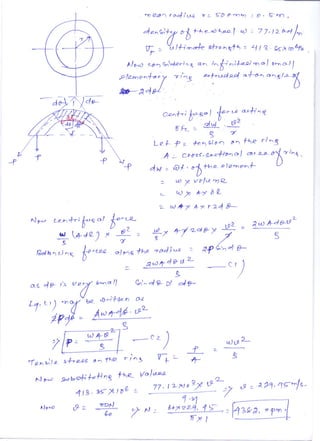 mean radius r = 500mm = 0.5m,
density of the wheel, ω = 77.12 kN/m
σt = ultimate strength = 413.
Now considering an infinitesimal small
elementary ring extruded at an angle of
2dθ.
dθ dθ
P P
P P
Centrifugal force acting
δFc = dw/g v²/r
Let P = tension on the ring
A = cross-sectional area of ring.
dw = wt. of the element
= w × volume
= w × A × δl
= w A × r 2dθ
Now centrifugal force
w/g (A·δl) × v²/r = w/g × A × 2dθ × v²/r = 2wAdθv²/g
Balancing forces along the radius = 2P sin dθ
= 2wAdθv²/g —(1)
as dθ is very small sin dθ ≈ dθ
Eq. (1) may be written as
2Pdθ = 2wAdθ·v²/g
=> P = wAv²/g —(2)
Tensile stress on the ring σt = P/A = wv²/g
Now substituting the values
413.25×10⁶ = 77.12×10³ × v²/9.81 => v = 229.45m/s.
Now v = πDN/60 => N = 60×229.45/π×1 = 4382. rpm.